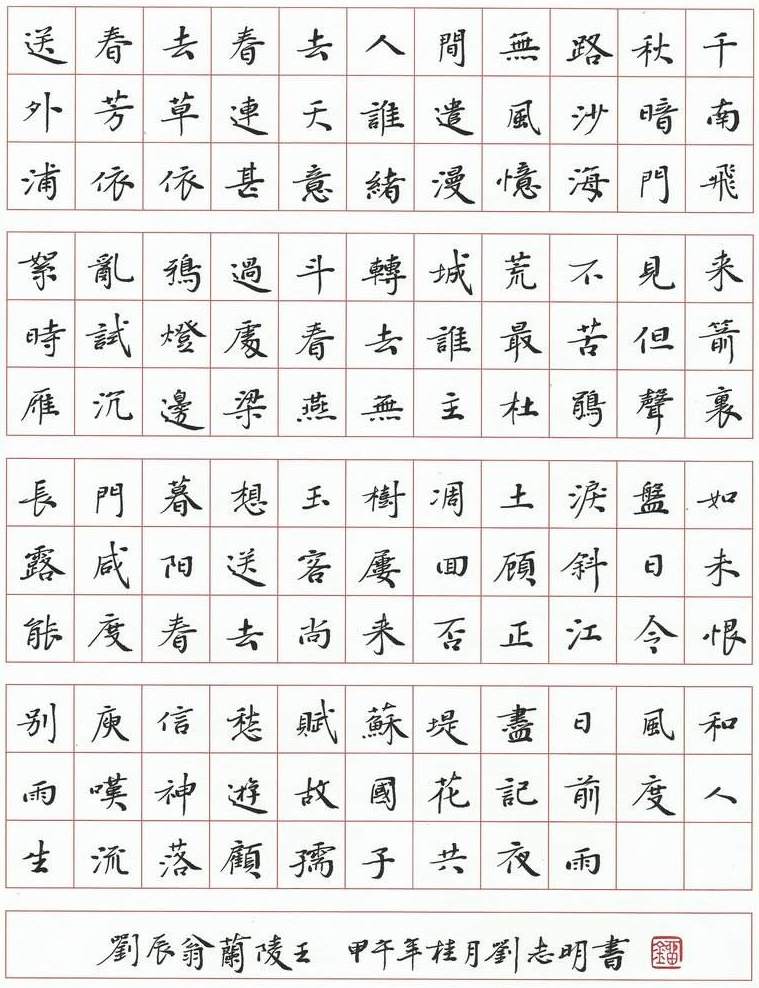 送春去春去人間無路秋千
外芳草連天誰遣風沙暗南
浦依依甚意緒漫憶海門飛
絮亂鴉過斗轉城荒不見来
時試燈處春去誰最苦但箭
雁沉邊梁燕無主杜鵑聲裏
長門暮想玉樹凋土淚盤如
露咸阳送客屢回顾斜日未
能度春去尚来否正江令恨
别庾信愁賦蘇堤盡日風和
雨嘆神遊故國花記前度人
生流落顧孺子共夜雨
劉辰翁蘭陵王 甲午年桂月劉志明書